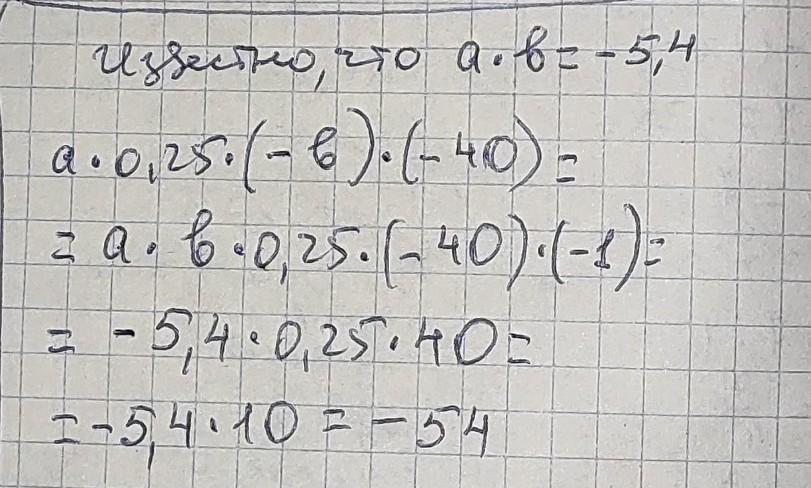 Известно, что а · в = - 5,4
а · 0,25 · (- в) · (- 40) =
= а · в · 0,25 · (- 40) · (-1) =
= - 5,4 · 0,25 · 40 =
= - 5,4 · 10 = - 54